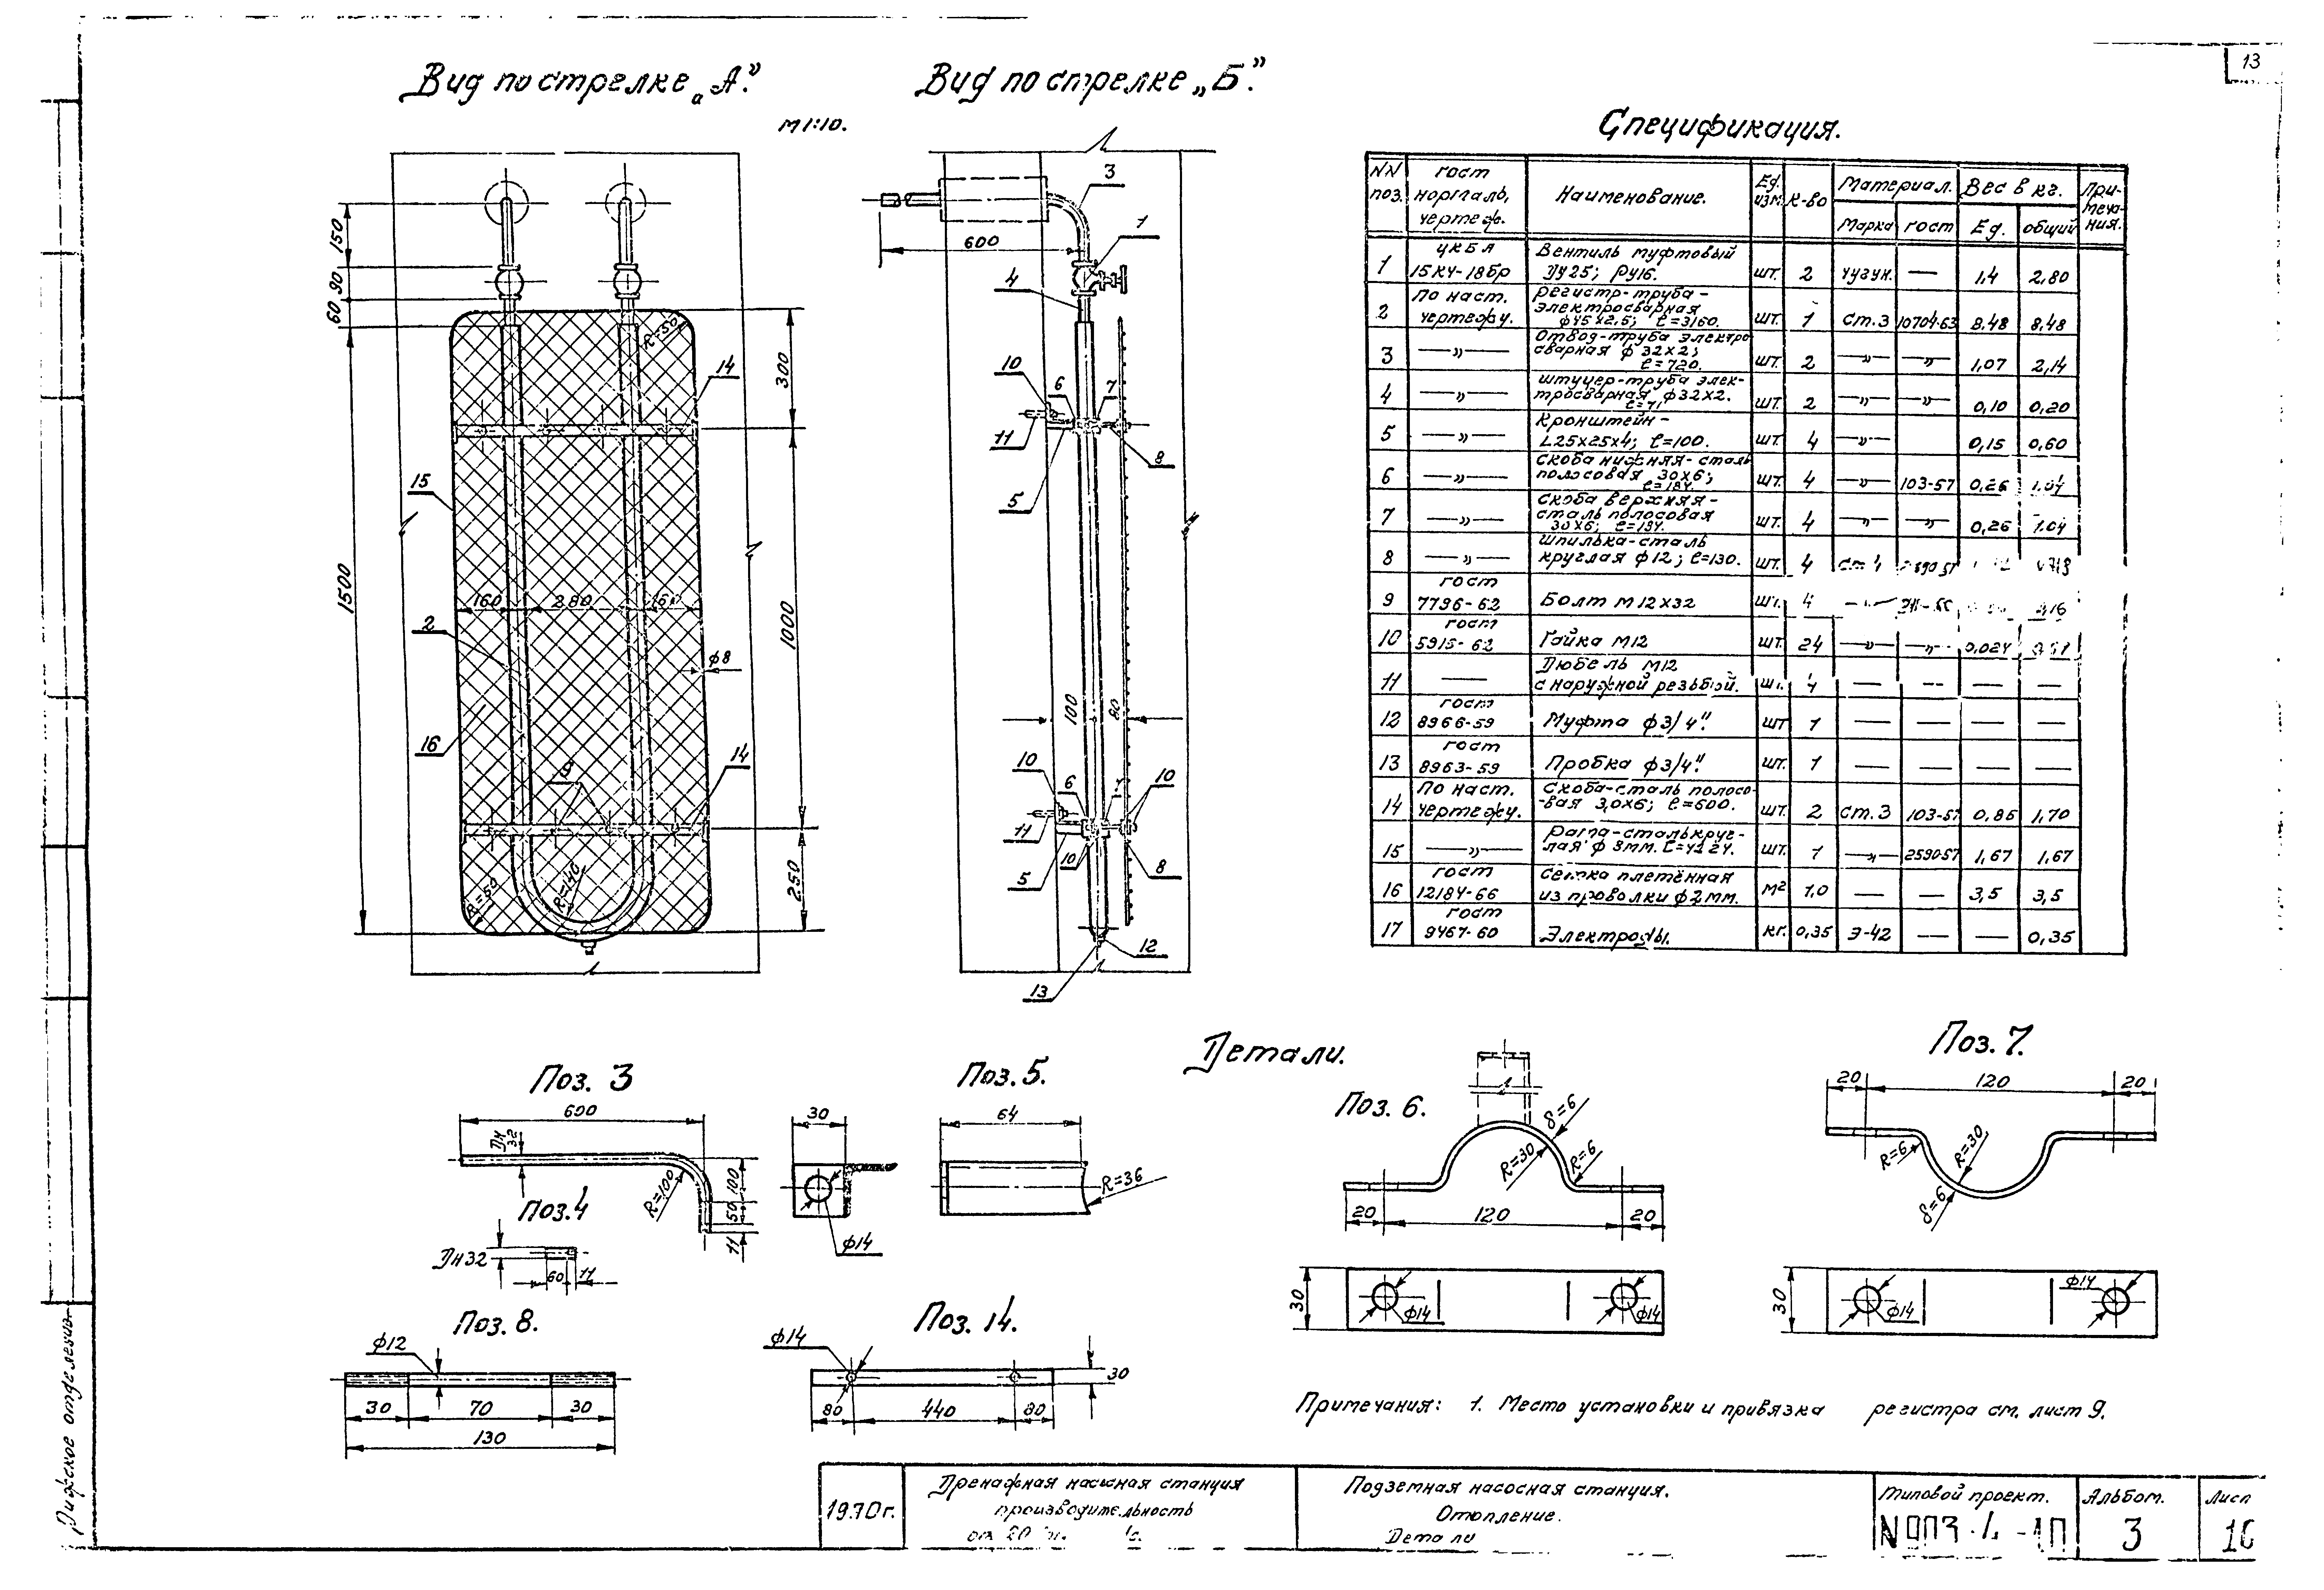 13
Вид по стрелке „А“.
Вид по стрелке „Б“.
М 1:10.
150
90
60
1500
300
1000
250
160
280
R=50
R=50
R=140
ф8
14
15
2
16
9
14
3
600
1
4
10
6
7
11
5
8
100
80
10
6
10
11
10
5
8
12
13
Спецификация.
NN поз. | гост нормаль, чертеж. | Наименование. | Ед. изм. | К-во | Материал. Марка гост | Вес в кг. Ед. общий | Примечания.
1 | ЦКБА 15КЧ-18бр | Вентиль муфтовый Ду25; Ру16. | шт. | 2 | чугун. | — | 1,4 | 2,80
2 | По наст. чертежу. | регистр-труба-электросварная ф45х2,5; ℓ=3160. | шт. | 1 | Ст.3 | 10704-63 | 8,48 | 8,48
3 | —„— | Отвод-труба электросварная ф32х2; ℓ=720. | шт. | 2 | —„— | —„— | 1,07 | 2,14
4 | —„— | штуцер-труба электросварная ф32х2. ℓ=71 | шт. | 2 | —„— | —„— | 0,10 | 0,20
5 | —„— | Кронштейн- L25х25х4; ℓ=100. | шт. | 4 | —„— | 0,15 | 0,60
6 | —„— | Скоба нижняя-сталь полосовая 30х6; ℓ=184. | шт. | 4 | —„— | 103-57 | 0,26 | 1,04
7 | —„— | Скоба верхняя-сталь полосовая 30х6; ℓ=184. | шт. | 4 | —„— | —„— | 0,26 | 1,04
8 | —„— | Шпилька-сталь круглая ф12; ℓ=130. | шт. | 4
9 | гост 7796-62 | Болт М12х32 | шт. | 4
10 | гост 5915-62 | Гайка М12 | шт. | 24 | —„— | —„— | 0,024
11 | — | Дюбель М12 с наружной резьбой. | шт. | 4 | — | — | — | —
12 | гост 8966-59 | Муфта ф3/4" | шт | 1 | — | — | — | —
13 | гост 8963-59 | Пробка ф3/4". | шт. | 1 | — | — | — | —
14 | По наст. чертежу. | Скоба-сталь полосовая 3,0х6; ℓ=600. | шт. | 2 | Ст.3 | 103-57 | 0,85 | 1,70
15 | —„— | рама-сталь круглая ф 8мм. | шт. | 1 | —„— | 2590-57 | 1,67 | 1,67
16 | гост 12184-66 | сетка плетённая из проволки ф2мм. | м² | 1,0 | — | — | 3,5 | 3,5
17 | гост 9467-60 | Электроды. | кг. | 0,35 | Э-42 | — | — | 0,35
Детали.
Поз. 3
600
Дн 32
R=100
100
50
11
Поз.4
Дн32
60
11
Поз. 5.
30
64
ф14
R=36
Поз. 6.
δ=6
R=30
R=6
20
120
20
30
ф14
ф14
Поз. 7.
20
120
20
R=6
R=30
δ=6
30
ф14
ф14
Поз. 8.
ф12
30
70
30
130
Поз. 14.
ф14
30
80
440
80
Примечания: 1. Место установки и привязка регистра см. лист 9.
1970г.
Дренажная насосная станция
производительность
Подземная насосная станция.
Отопление.
Детали
типовой проект.
Альбом.
3
Лист